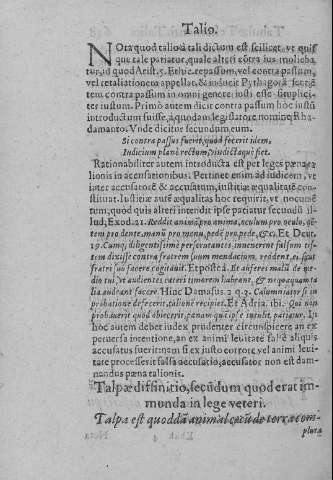 Talio.
NOta quod talio à tali dictum est scilicet vt quis
que tale patiatur, quale alteri contra ius molieba
tur, id quod Arist. 5. Ethic. repassum, vel contra passum,
vel retaliationem appellat, & inducit Pythagorã
tem contra passum in omni genere iusti esse simplici
ter iustum. Primò autem dicit contra passum hoc iustũ
introductum fuisse, à quodam legislatore nomine Rha
damanto. Vnde dicitur secundum eum.
Si contra passus fuerit, quod fecerit idem,
Iudicium planè rectum,
Rationabiliter autem introducta est per leges pœna ta
lionis in accusationibus: Pertinet enim ad iudicem, vt
inter accusatorẽ & accusatum, iustitiæ æqualitatẽ con
stituat. Iustitiæ autẽ æqualitas hoc requirit, vt nocumẽ
tum, quod quis alteri intendit ipse patiatur secundũ il-
lud, Exod. 21. Reddit animã pro anima, oculum pro oculo, dẽ-
tem pro dente, manũ pro manu, pedẽ pro pede, &c. Et Deut.
19. Cumq; diligentissimè perscrutantes, inuenerint falsum tes-
tem dixisse contra fratrem suum mendacium, reddent, ei sicut
fratri suo facere cogitauit. Et postea. Et auferes malũ de me-
dio tui, vt audientes cæteri timorem habeant, & nequaquam ta
lia audeant facere Hinc Damasus 2. q. 3. Calumniator si in
probatione defecerit, talionẽ recipiet. Et Adria. ibi. Qui non
probauerit quod obiecerit, pœnam quã ipse intulit, patiatur. In
hoc autem debet iudex prudenter circunspicere an ex
peruersa intentione, an ex animi leuitate falsè aliquis
accusatus fuerit: nam si ex iusto errore, vel animi leui-
tate processerit falsa accusatio, accusator non est dam-
nandus pœna talionis.
Talpæ diffinitio, secũdum quod erat im-
monda in lege veteri.
Talpa est quoddã animal cæcũ de terra com-
pluta